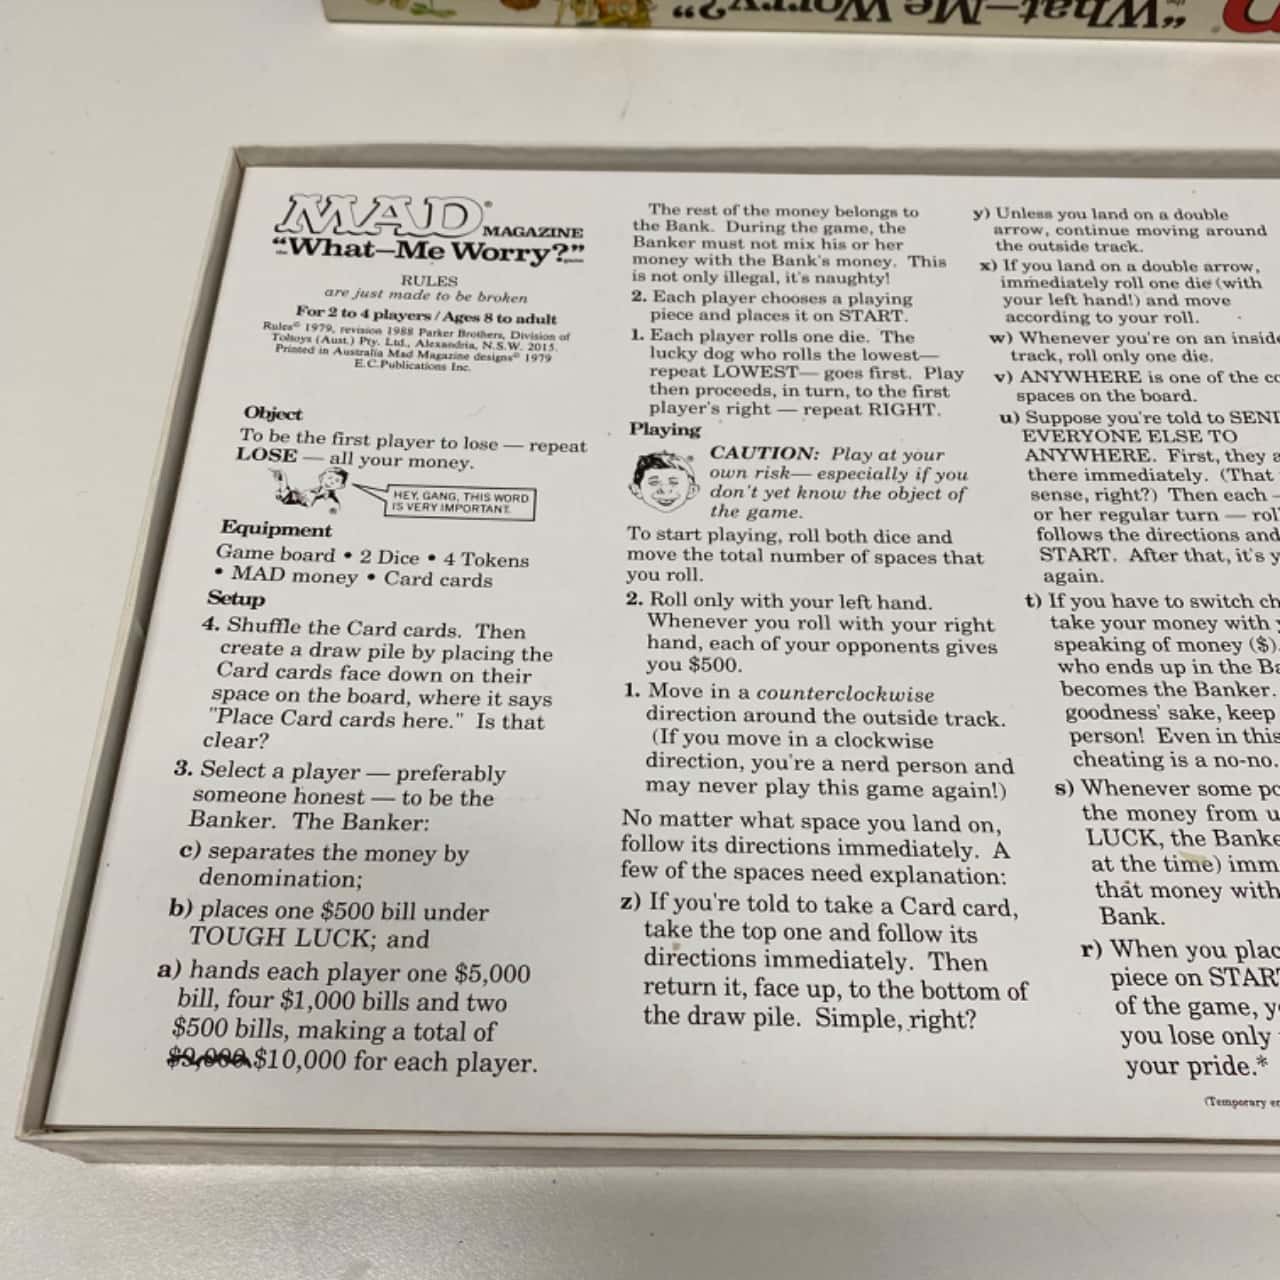 "What—Me Worry?"
MAD® MAGAZINE
"What—Me Worry?"
RULES
are just made to be broken
For 2 to 4 players / Ages 8 to adult
Rules© 1979, revision 1988 Parker Brothers, Division of
Toltoys (Aust.) Pty. Ltd., Alexandria, N.S.W. 2015.
Printed in Australia Mad Magazine designs© 1979
E.C.Publications Inc.
Object
To be the first player to lose — repeat
LOSE — all your money.
HEY, GANG, THIS WORD
IS VERY IMPORTANT.
Equipment
Game board • 2 Dice • 4 Tokens
• MAD money • Card cards
Setup
4. Shuffle the Card cards. Then
create a draw pile by placing the
Card cards face down on their
space on the board, where it says
"Place Card cards here." Is that
clear?
3. Select a player — preferably
someone honest — to be the
Banker. The Banker:
c) separates the money by
denomination;
b) places one $500 bill under
TOUGH LUCK; and
a) hands each player one $5,000
bill, four $1,000 bills and two
$500 bills, making a total of
$9,000 $10,000 for each player.
The rest of the money belongs to
the Bank. During the game, the
Banker must not mix his or her
money with the Bank's money. This
is not only illegal, it's naughty!
2. Each player chooses a playing
piece and places it on START.
1. Each player rolls one die. The
lucky dog who rolls the lowest—
repeat LOWEST— goes first. Play
then proceeds, in turn, to the first
player's right — repeat RIGHT.
Playing
CAUTION: Play at your
own risk— especially if you
don't yet know the object of
the game.
To start playing, roll both dice and
move the total number of spaces that
you roll.
2. Roll only with your left hand.
Whenever you roll with your right
hand, each of your opponents gives
you $500.
1. Move in a counterclockwise
direction around the outside track.
(If you move in a clockwise
direction, you're a nerd person and
may never play this game again!)
No matter what space you land on,
follow its directions immediately. A
few of the spaces need explanation:
z) If you're told to take a Card card,
take the top one and follow its
directions immediately. Then
return it, face up, to the bottom of
the draw pile. Simple, right?
y) Unless you land on a double
arrow, continue moving around
the outside track.
x) If you land on a double arrow,
immediately roll one die (with
your left hand!) and move
according to your roll.
w) Whenever you're on an inside
track, roll only one die.
v) ANYWHERE is one of the
spaces on the board.
u) Suppose you're told to
EVERYONE ELSE TO
ANYWHERE. First, they
there immediately. (That
sense, right?) Then each —
or her regular turn —
follows the directions and
START. After that, it's
again.
t) If you have to switch
take your money with
speaking of money ($).
who ends up in the
becomes the Banker.
goodness' sake, keep
person! Even in this
cheating is a no-no.
s) Whenever some
the money from
LUCK, the
at the time)
that money with
Bank.
r) When you
piece on
of the game,
you lose only
your pride.*
(Temporary